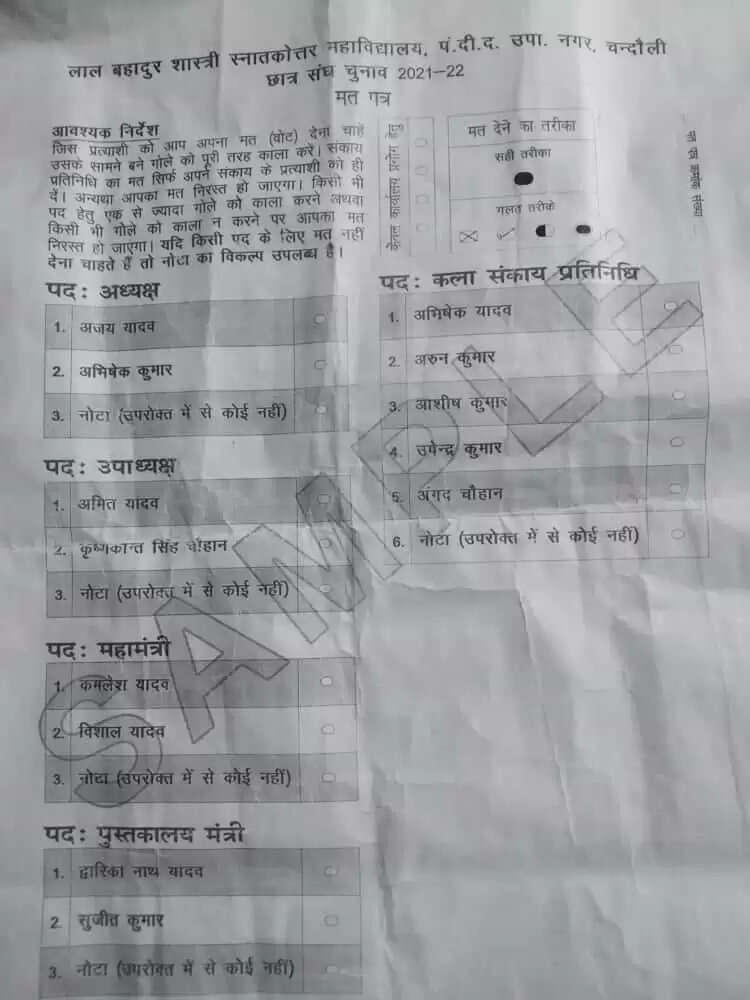 लाल बहादुर शास्त्री स्नातकोत्तर महाविद्यालय, पं.दी.द. उपा. नगर, चन्दौली
छात्र संघ चुनाव 2021-22
मत गत्र
आवश्यक निर्देश
जिस प्रत्याशी को आप अपना मत (वोट) देना चाहें
उसके सामने बने गोले को पूरी तरह काला करें। संकाय
प्रतिनिधि का मत सिर्फ अपने संकाय के प्रत्याशी को ही
दें। अन्यथा आपका मत निरस्त हो जाएगा। किसी भी
पद हेतु एक से ज्यादा गोले को काला करने अथवा
किसी भी गोले को काला न करने पर आपका मत
निरस्त हो जाएगा। यदि किसी एद के लिए मत नहीं
देना चाहते हैं तो नोटा का विकल्प उपलब्ध है।
केवल कार्यालय प्रयोग हेतु
मत देने का तरीका
सही तरीका
गलत तरीके
पद: अध्यक्ष
1. अजय यादव
2. अभिषेक कुमार
3. नोटा (उपरोक्त में से कोई नहीं)
पद: उपाध्यक्ष
1. अमित यादव
2. कृष्णकान्त सिंह चौहान
3. नोटा (उपरोक्त में से कोई नहीं)
पद: महामंत्री
1. कमलेश यादव
2. विशाल यादव
3. नोटा (उपरोक्त में से कोई नहीं)
पद: पुस्तकालय मंत्री
1. द्वारिका नाथ यादव
2. सुजीत कुमार
3. नोटा (उपरोक्त में से कोई नहीं)
पद: कला संकाय प्रतिनिधि
1. अभिषेक यादव
2. अरुन कुमार
3. आशीष कुमार
4. उपेन्द्र कुमार
5. अंगद चौहान
6. नोटा (उपरोक्त में से कोई नहीं)
SAMPLE